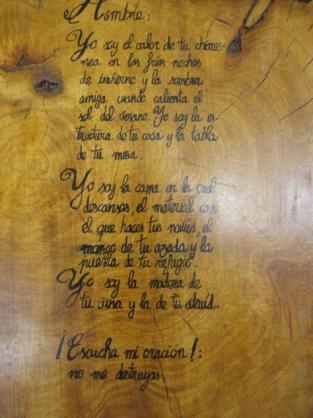 Hombre:
Yo soy el calor de tu chime-
nea en las frías noches
de invierno y la sombra
amiga cuando calienta el
sol del verano. Yo soy la es
tructura de tu casa y la tabla
de tu mesa.
Yo soy la cama en la cual
descansas, el material con
el que haces tus navíos, el
mango de tu azada y la
puerta de tu refugio.
Yo soy la madera de
tu cuna y la de tu ataúd.
¡Escucha mi oración!:
no me destruyas.